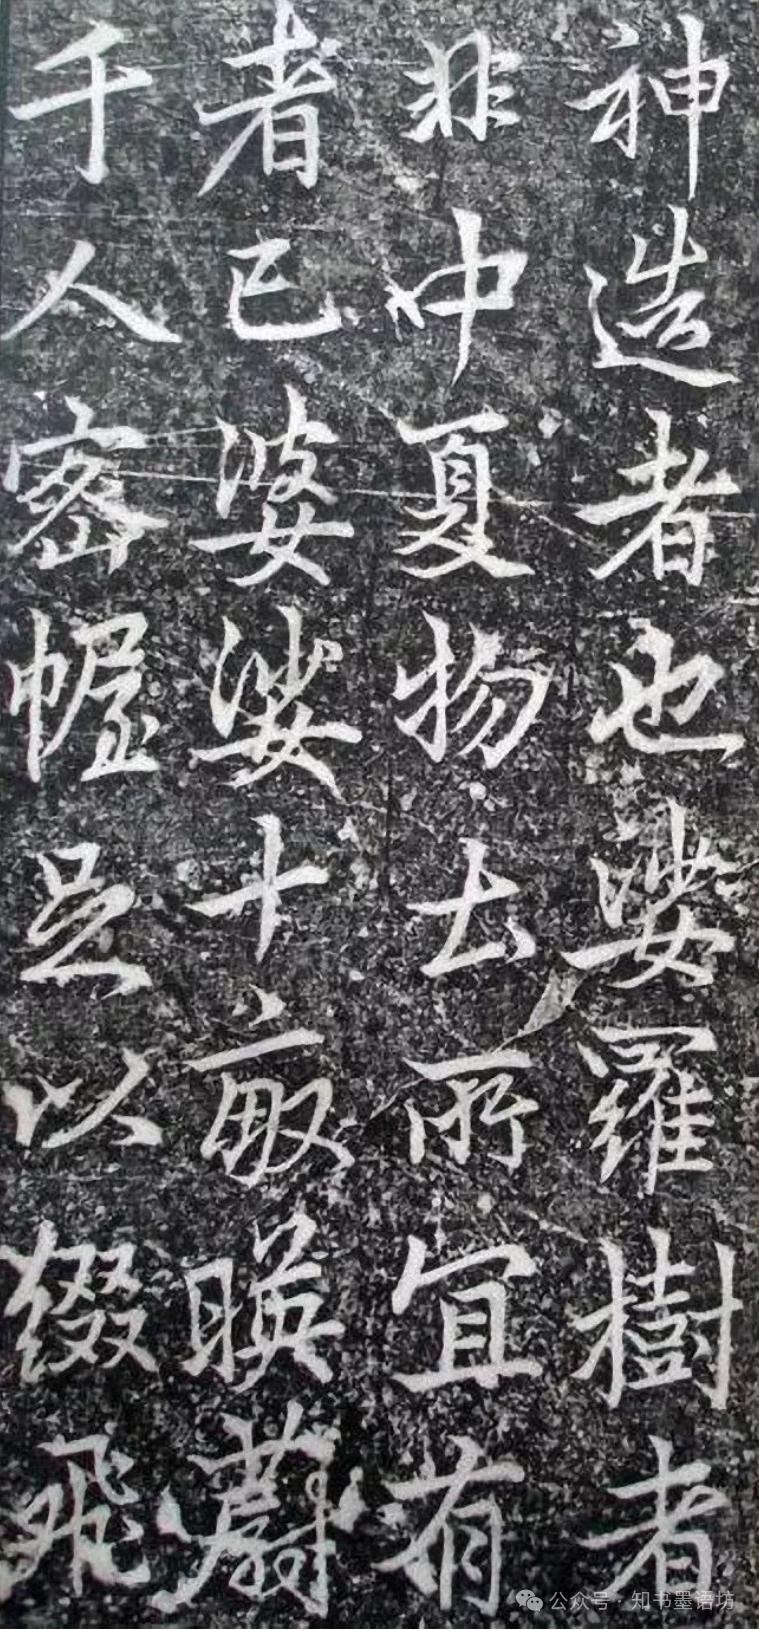 神造者也娑羅樹者
非中夏物土所宜有
者已婆娑十畝暎蔚
千人密幄足以綴飛
公众号 · 知书墨语坊